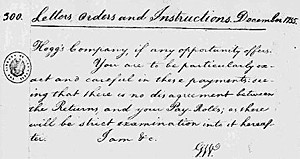 300. Letters Orders and Instructions. December 1755.
Hogg's Company, if any opportunity offers.
You are to be particularly ex-
act and careful in these payments: see-
ing that there is no disagreement between
the Returns and your Pay-Rolls; as there
will be strict examination into it hereaf-
ter. I am &c.
GW.